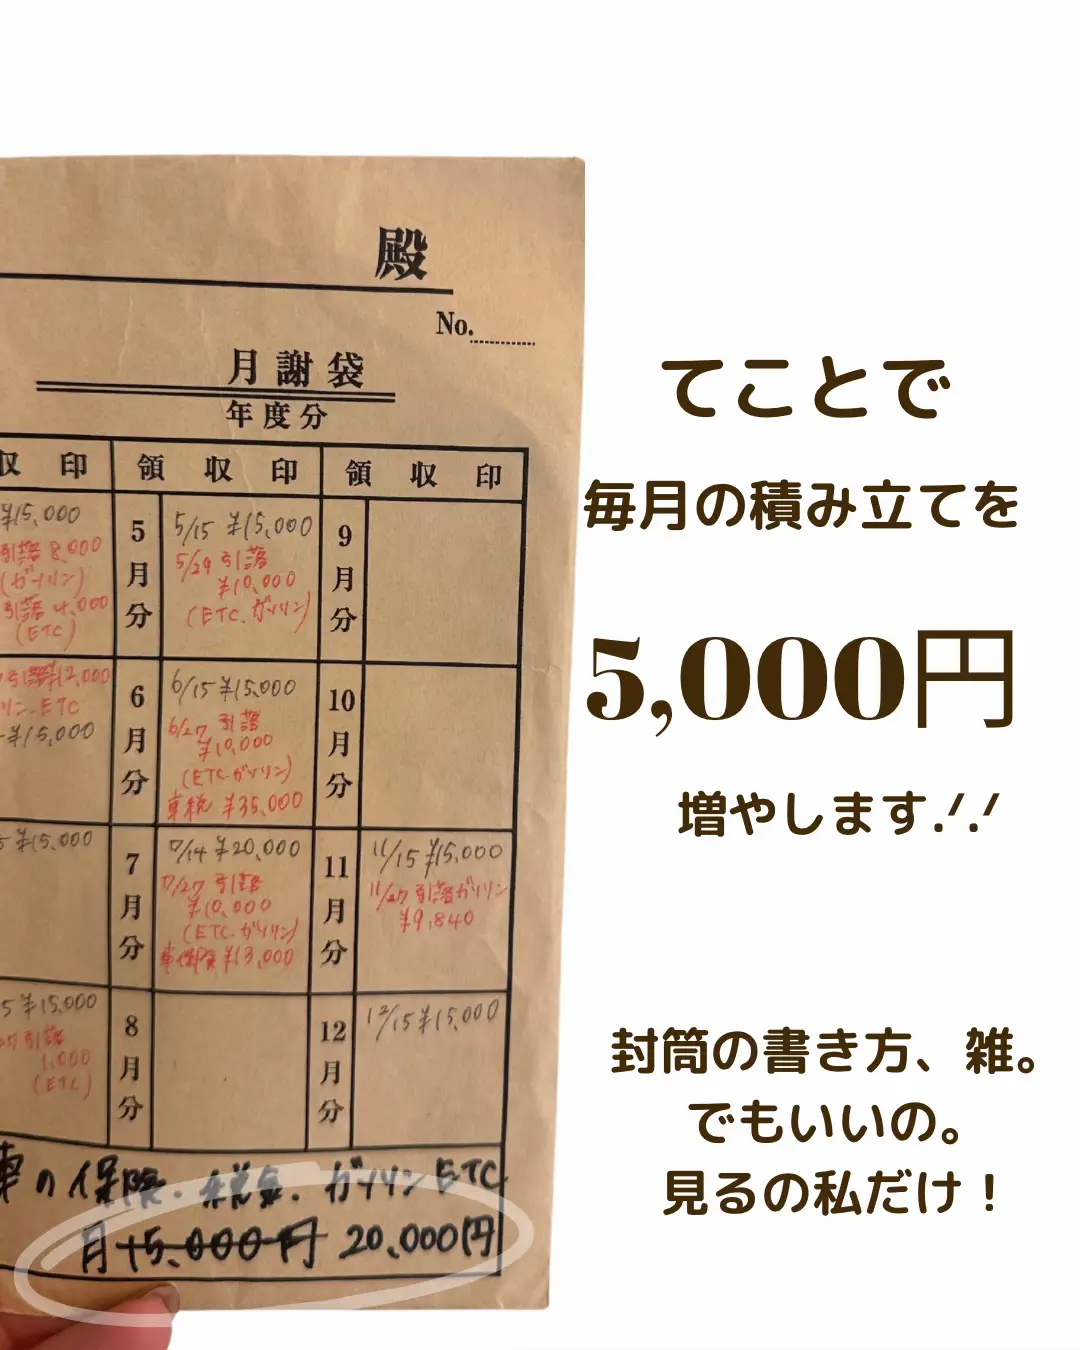 殿
No.
月謝袋
年度分
収 印
領 収 印
領 収 印
¥15,000
引落 8,000
(ガソリン)
引落 4,000
(ETC)
5月分
5/15 ¥15,000
5/29 引落
¥10,000
(ETC.ガソリン)
9月分
引落¥12,000
リン.ETC
¥15,000
6月分
6/15 ¥15,000
6/27 引落
¥10,000
(ETC.ガソリン)
車税 ¥35,000
10月分
5 ¥15,000
7月分
7/14 ¥20,000
7/27 引落
¥10,000
(ETC.ガソリン)
車保険 ¥13,000
11月分
11/15 ¥15,000
11/27 引落ガソリン
¥9,840
5 ¥15,000
引落
1,000
(ETC)
8月分
12月分
12/15 ¥15,000
車の保険.税金.ガソリンETC
月 15,000円 20,000円
てことで
毎月の積み立てを
5,000円
増やします.ᐟ.ᐟ
封筒の書き方、雑。
でもいいの。
見るの私だけ！